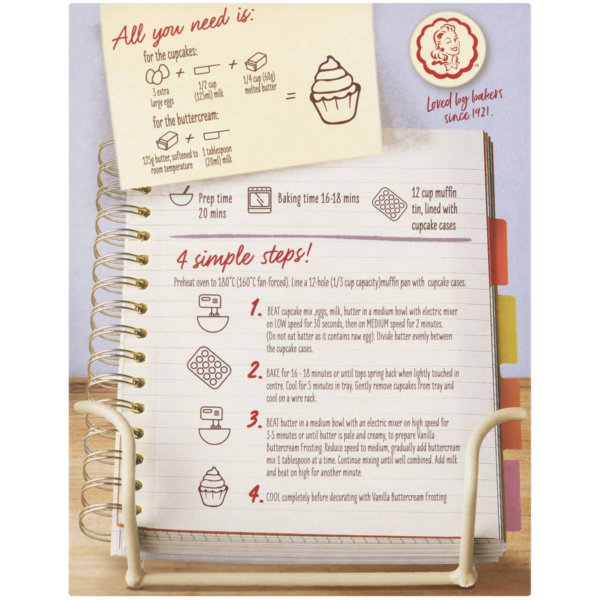 All you need is:
for the cupcakes:
3 extra
large eggs
+
1/2 cup
(125ml) milk
+
1/4 cup (60g)
melted butter
=
for the buttercream:
125g butter, softened to
room temperature
+
1 tablespoon
(20ml) milk
Loved by bakers
since 1921.
Prep time
20 mins
Baking time 16-18 mins
12 cup muffin
tin, lined with
cupcake cases
4 simple steps!
Preheat oven to 180°C (160°C fan-forced). Line a 12-hole (1/3 cup capacity)muffin pan with cupcake cases.
1. BEAT cupcake mix ,eggs, milk, butter in a medium bowl with electric mixer
on LOW speed for 30 seconds, then on MEDIUM speed for 2 minutes.
(Do not eat batter as it contains raw egg). Divide batter evenly between
the cupcake cases.
2. BAKE for 16 - 18 minutes or until tops spring back when lightly touched in
centre. Cool for 5 minutes in tray. Gently remove cupcakes from tray and
cool on a wire rack.
3. BEAT butter in a medium bowl with an electric mixer on high speed for
3-5 minutes or until butter is pale and creamy, to prepare Vanilla
Buttercream Frosting. Reduce speed to medium, gradually add buttercream
mix 1 tablespoon at a time. Continue mixing until well combined. Add milk
and beat on high for another minute.
4. COOL completely before decorating with Vanilla Buttercream Frosting